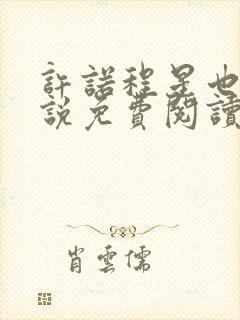 許諾程昱也
說免費閱讀
肖雲儒